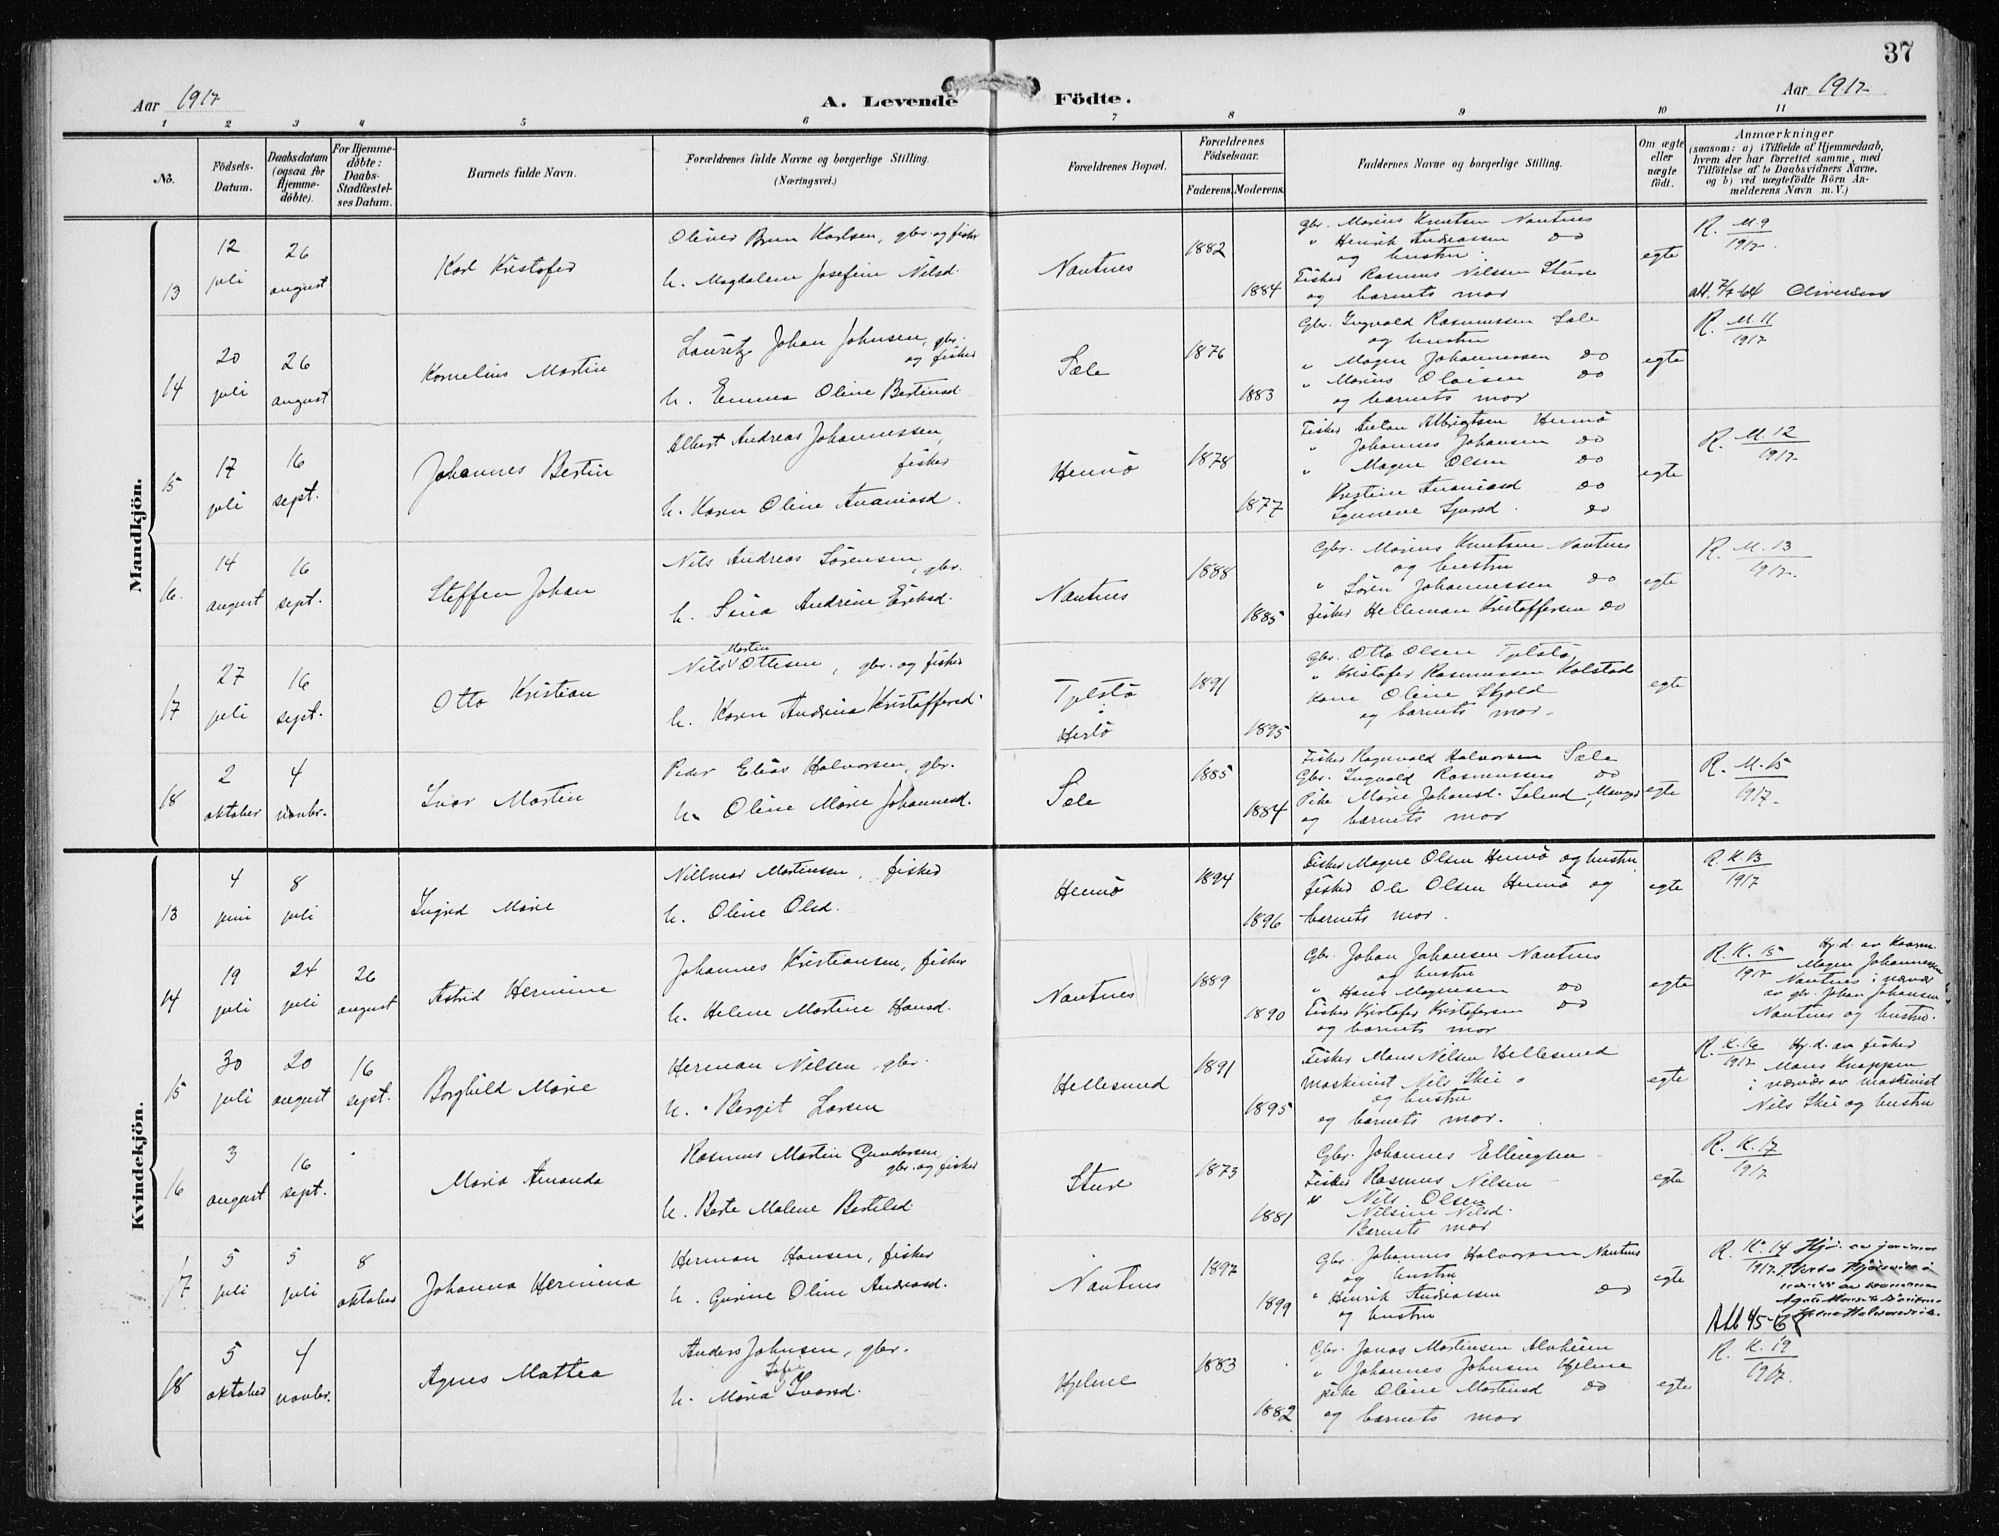 37
Aar 1917
A. Levende Födte.
Aar 1917
1 2 3 4 5 6 7 8 9 10 11
No.
Födsels-Datum.
Daabsdatum (ogsaa for Hjemme-döbte).
For Hjemme-döbte: Daabs-Stadfæstel-ses Datum.
Barnets fulde Navn.
Forældrenes fulde Navne og borgerlige Stilling.
(Næringsvei.)
Forældrenes Bopæl.
Forældrenes Födselsaar.
Faderens. Moderens.
Faddernes Navne og borgerlige Stilling.
Om ægte eller uægte födt.
Anmærkninger
(saasom: a) i Tilfælde af Hjemmedaab,
hvem der har forrettet samme, med
Tilföielse af to Daabsvidners Navne,
og b) ved uægtefödte Börn An-
melderens Navn m. V.)
Mandkjön.
13
12 juli
26 august
Karl Kristofer
Oliver Brun Karlsen, gbr. og fisker
h. Magdalene Josefine Nilsd.
Nautnes
1882
1884
Gbr. Marius Knutsen Nautnes
" Henrik Andreassen do
og hustru
Fisker Rasmus Nilsen Sture
og barnets mor
egte
R. M. 9
1917.
Oliversen
14
20 juli
26 august
Kornelius Martin
Lauritz Johan Johnsen, gbr.
og fisker
h. Emma Oline Bertinsd.
Sæle
1876
1883
Gbr. Ingvald Rasmussen Sæle
og hustru
" Magne Johannessen do
" Marius Olaisen do
og barnets mor
egte
R. M. 11
1917
15
17 juli
16 sept.
Johannes Bertin
Albert Andreas Johannessen,
fisker
h. Karen Oline Ananiasd.
Hennö
1878
1877
Fisker Anton Albrigtsen Hennö
" Johannes Johansen do
" Magne Olsen do
Kristine Ananiasd do
Synneve Sjursd. do
egte
R. M. 12
1917
16.
14 august
16 sept.
Steffen Johan
Nils Andreas Sörensen, gbr.
h. Sina Andrine Eriksd.
Nautnes
1888
1885
Gbr. Marius Knutsen Nautnes
og hustru
" Sören Johannessen do
fisker Helleman Kristoffersen do
egte
R. M. 13
1917.
17
27 juli
16 sept.
Otto Kristian
Martin
Nils Ottesen, gbr. og fisker
h. Karen Andrina Kristoffersd.
Tjelstö
Herlö
1891
1895
Gbr. Otto Olsen Tjelstö
" Kristofer Rasmussen Kolstad
kone Oline Skjold
og barnets mor.
egte
18
2 oktober
4 novbr.
Ivar Martin
Peder Elias Halvorsen, gbr.
h. Oline Marie Johannesd.
Sæle
1885
1884
Fisker Ragnvald Halvorsen Sæle
Gbr. Ingvald Rasmussen do
Pike Marie Johansd. Manger
og barnets mor
egte
R. M. 15
1917.
Kvindekjön.
13
4 juni
8 juli
Ingrid Marie
Nillmar Martinsen, fisker
h. Oline Olsd.
Hennö
1894
1896
Fisker Magne Olsen Hennö og hustru
fisker Ole Olsen Hennö og
barnets mor.
egte
R. K. 13
1917
14
19 juli
24 juli
26 august
Astrid Hermine
Johannes Kristiansen, fisker
h. Helene Martine Hansd.
Nautnes
1889
1890
Gbr. Johan Johansen Nautnes
og hustru
" Hans Magnesen do
Fisker Kristofer Kristofersen do
og barnets mor
egte
R. K. 15
1917
Hj.d. av
Magne Johannessen
Nautnes i nærvær
av gbr. Johan Johansen
Nautnes og hustru.
15
30 juli
20 august
16 sept.
Borghild Marie
Herman Nilsen, gbr.
h. Bergit Larsen
Hellesund
1891
1895
Fisker Mons Nilsen Hellesund
maskinist Nils Skie
og hustru
og barnets mor.
egte
R. K. 16
1917
Hj.d. av fisker
Mons Knappen
i nærvær av maskinist
Nils Skie og hustru
16
3 august
16 sept.
Maria Amanda
Rasmus Martin Gundersen,
gbr. og fisker
h. Berte Malene Bertelsd.
Sture
1873
1881
Gbr. Johannes Ellingsen
Fisker Rasmus Nilsen
" Nils Olsen
Nilsine Nilsd.
Barnets mor
egte
R. K. 17
1917
17
5 juli
5 juli
8 oktober
Johanna Hermina
Herman Hansen, fisker
h. Gurine Oline Andreasd.
Nautnes
1897
1899
Gbr. Johannes Halvorsen Nautnes
og hustru
" Henrik Andreassen do
og hustru
egte
R. K. 14
1917.
18
5 oktober
4 novbr.
Agnes Mattea
Anders Johnsen, gbr.
Sofie
h. Maria Ivarsd.
Hjelme
1883
1882
Gbr. Jonas Martinsen Alvheim
" Johannes Johnsen Hjelme
pike Oline Martinsd do
og barnets mor
egte
R. K. 19
1917.